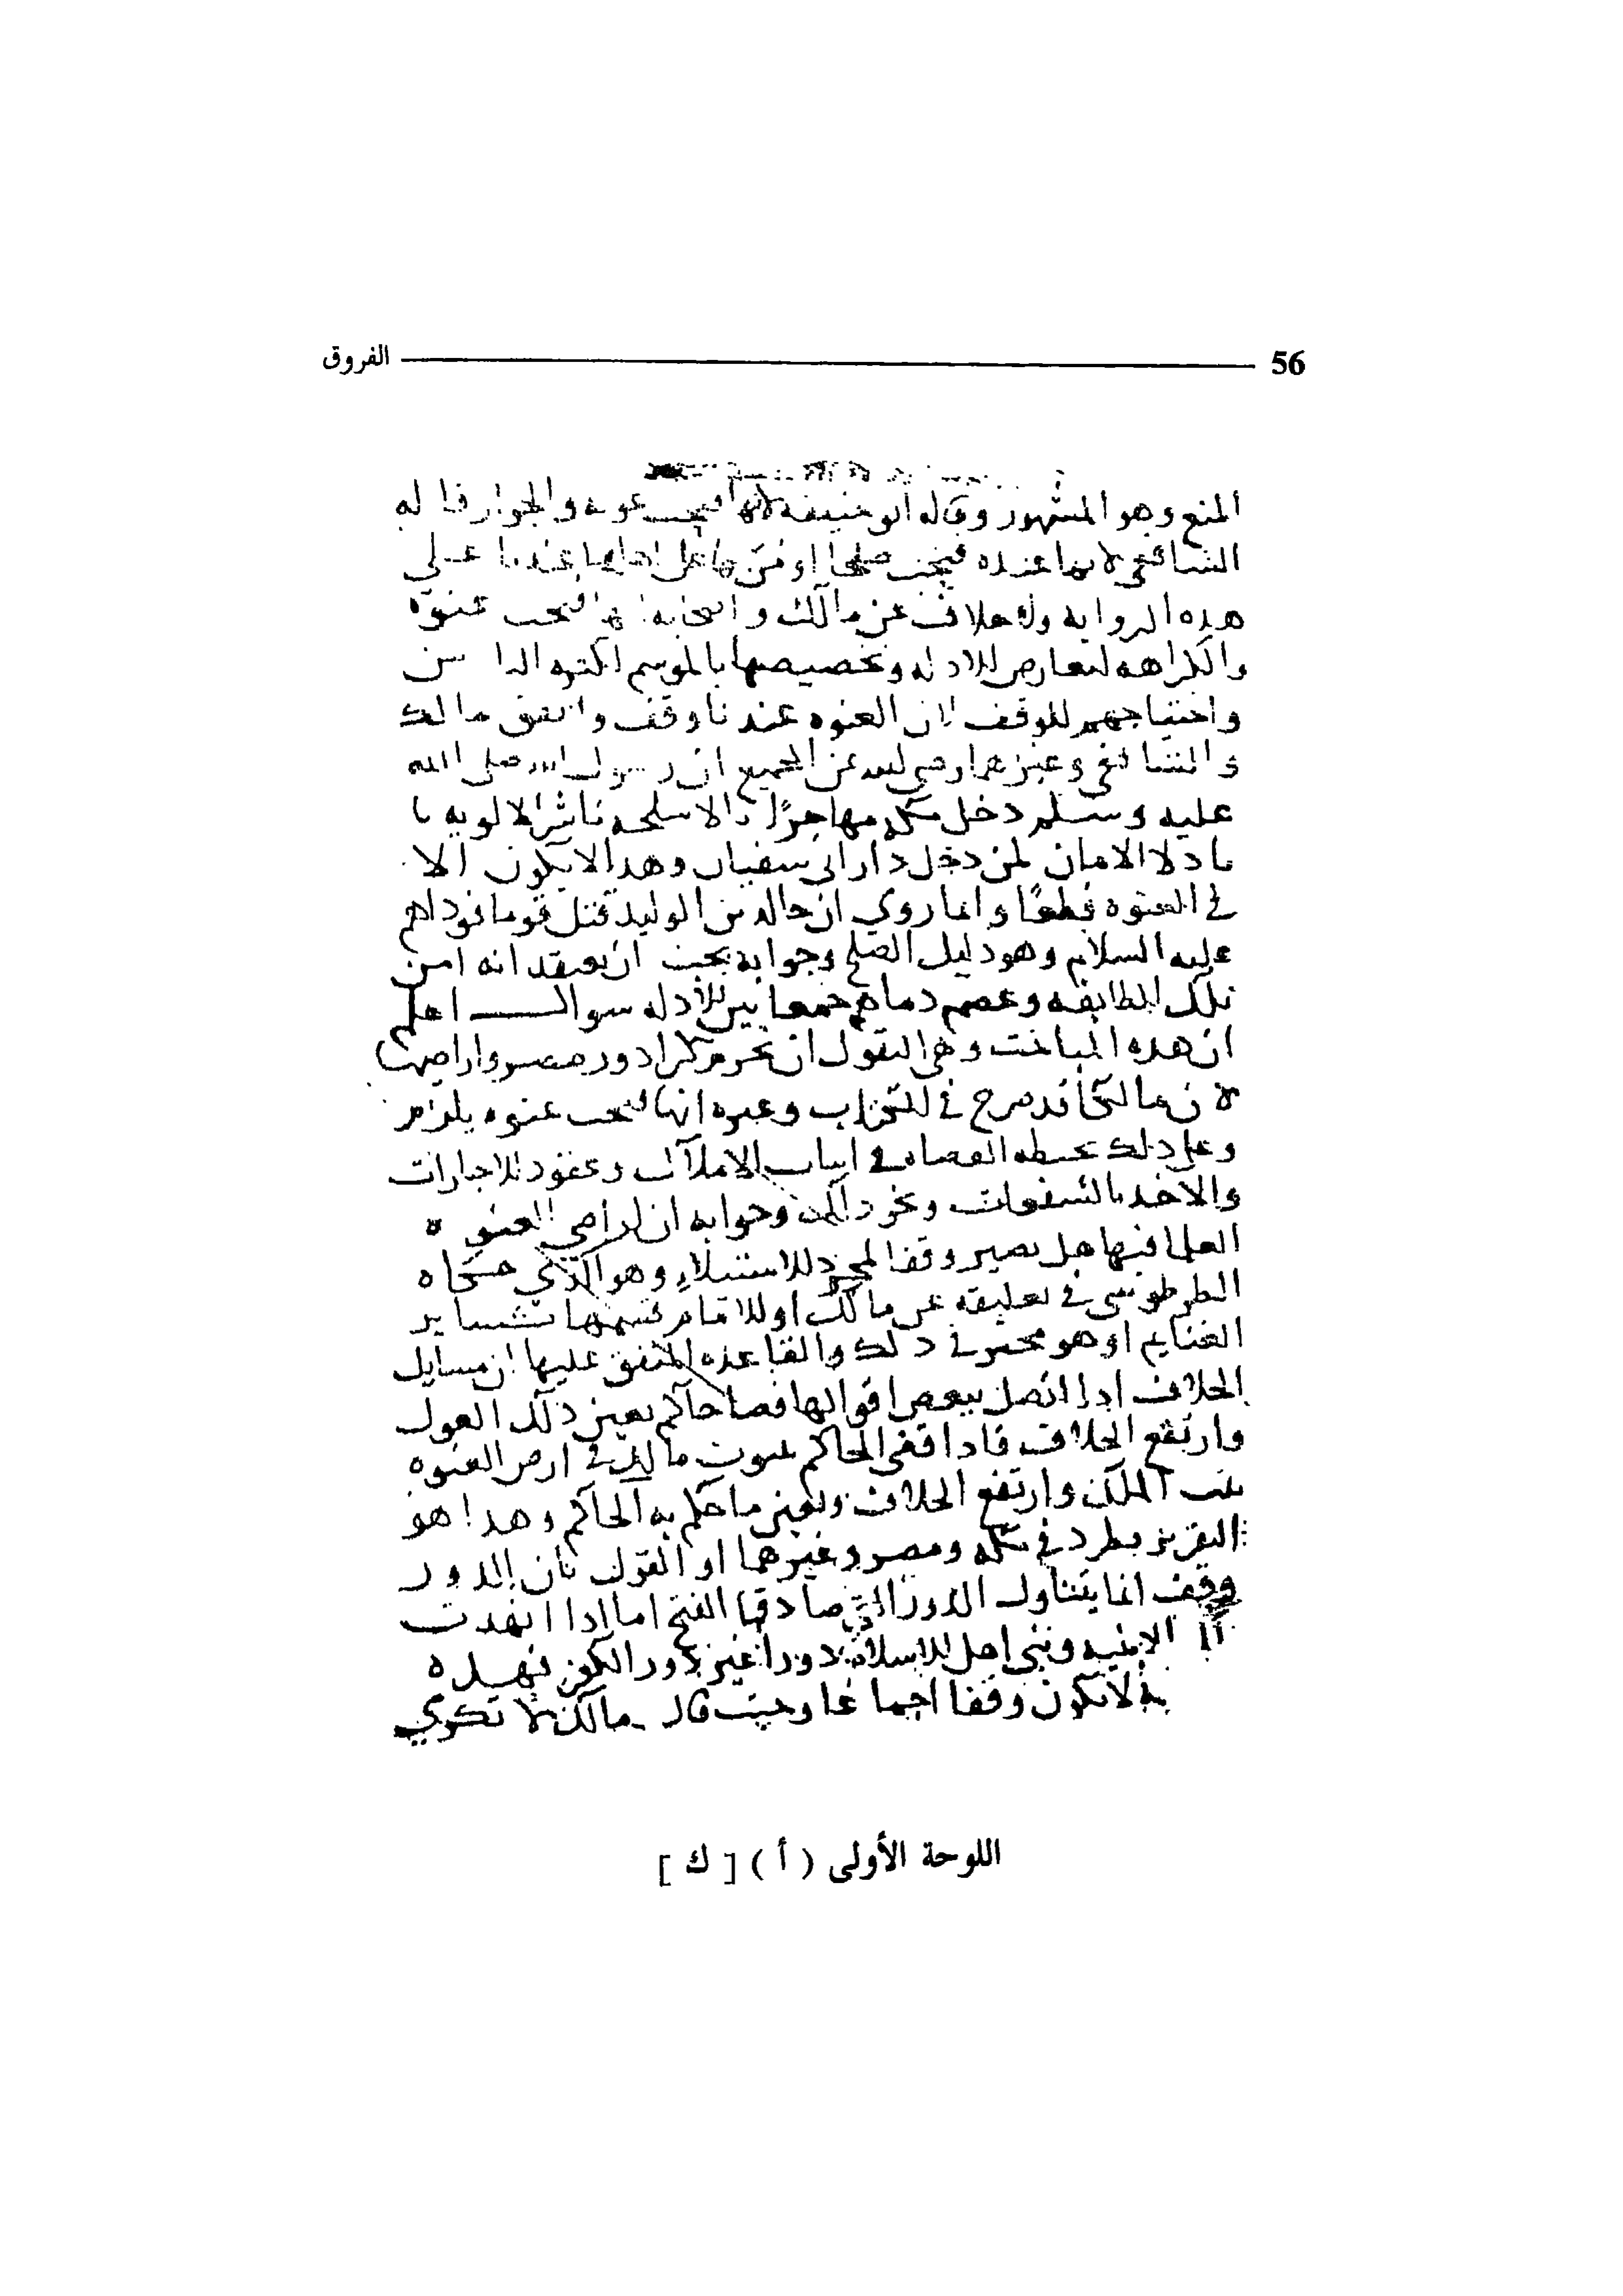 56 الفروق
المنع وهو المشهور وقاله ابو حنيفة لانها فتحت عنوه والجواز قاله
الشافعي لانها عنده فتحت صلحا او من بها على اهلها عندنا على
هذه الرواية ولا خلاف عن مالك واصحابه انها فتحت عنوة
والكراهه لتعارض الادله وتخصيصها بالموسم لكثره الناس
واحتياجهم للوقف لان العنوه عندنا وقف واتفق مالك
والشافعي وغيرهما رضي الله عن الجميع ان رسول الله صلى الله
عليه وسلم دخل مكه مجاهرًا بالاسلحه ناشرًا الالويه
باذلا الامان لمن دخل دار ابي سفيان وهذا لا يكون الا
في العنوه قطعًا وانما روي ان خالد بن الوليد قتل قوما فوداهم
عليه السلام وهو دليل الصلح وجوابه يجب ان يعتقد انه امن
تلك الطايفه وعصم دماهم جمعا بين الادله سوال اعلم
ان هذه المباحث وهي القول ان تحرم كرا دور مصر واراضيها
لان مالكا قد صرح في الكتاب وغيره انها فتحت عنوه يلزم
وعلى ذلك تخطيه القضاه في اثبات الاملاك وعقود الاجارات
والاخذ بالشفعات ونحو ذلك وجوابه ان اراضي العنوه
العلما فيها هل تصير وقفا لمجرد الاستيلاء وهو الذي حكاه
الطرطوشي في تعليقه عن مالك او للامام قسمها كساير
الغنايم او هو مخير في ذلك والقاعده المتفق عليها ان مسايل
الخلاف اذا اتصل ببعض اقوالها قضا حاكم تعين ذلك القول
وارتفع الخلاف فاذا قضى الحاكم بثبوت ملك في ارض العنوه
ثبت الملك وارتفع الخلاف وتعين ما حكم به الحاكم وهذا هو
التقرير يطرد في مكه ومصر وغيرهما او القول بان الدور
وقف انما يتناول الدور التي صادفها الفتح اما اذا انهدمت
الابنيه وبنى اهل الاسلام دورا غير دور الكفر فهذه
لا تكون وقفا اجماعا وحيث قال مالك لا تكرى
اللوحة الأولى ( أ ) [ ك ]